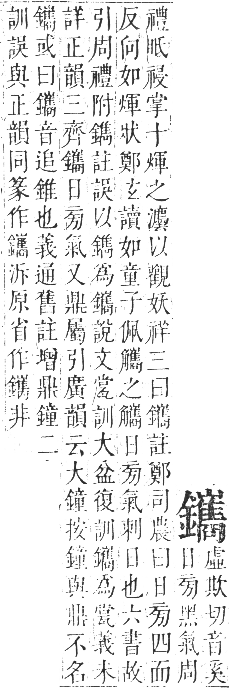 鑴
虛欺切音奚
日旁黑氣周
禮眡祲掌十煇之灋以觀妖祥三曰鑴註鄭司農曰日旁四而
反向如煇狀鄭玄讀如童子佩觿之觿日旁氣刺日也六書故
引周禮附鐫註誤以鐫爲鑴說文瓽訓大盆復訓鑴爲瓽義未
詳正韻三齊鑴日旁氣又鼎屬引廣韻云大鐘按鐘與鼎不名
鑴或曰鑴音追錐也義通售註增鼎鐘二
訓誤與正韻同篆作鑴泝原省作鐫非